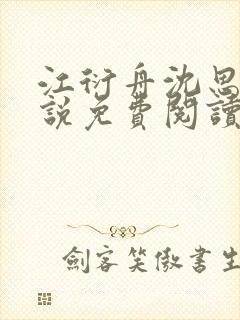 江衍舟沈思
說免費閱讀
劍客笑傲書生